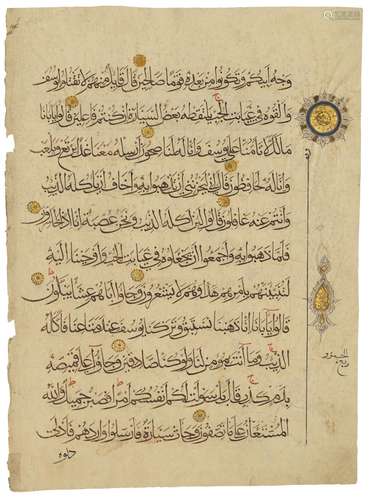 وجه أبيكم وتكونوا من بعده قوما صالحين قال قايل منهم لا تقتلوا يوسف
وألقوه في غيابت الجب يلتقطه بعض السيارة إن كنتم فاعلين قالوا يا أبانا
ما لك لا تأمنا على يوسف وإنا له لناصحون أرسله معنا غدا يرتع ويلعب
وإنا له لحافظون قال إني ليحزنني أن تذهبوا به وأخاف أن يأكله الذيب
وأنتم عنه غافلون قالوا لين أكله الذيب ونحن عصبة إنا إذا لخاسرون
فلما ذهبوا به وأجمعوا أن يجعلوه في غيابت الجب وأوحينا إليه
لتنبئنهم بأمرهم هذا وهم لا يشعرون وجاؤا أباهم عشاء يبكون
قالوا يا أبانا إنا ذهبنا نستبق وتركنا يوسف عند متاعنا فأكله
الذيب وما أنت بمؤمن لنا ولو كنا صادقين وجاؤا على قميصه
بدم كذب قال بل سولت لكم أنفسكم أمرا فصبر جميل والله
المستعان على ما تصفون وجاءت سيارة فأرسلوا واردهم فأدلى
دلوه